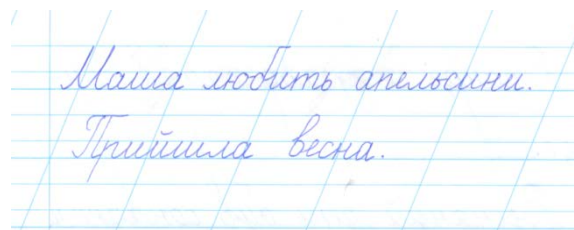 Маша любить апельсини.
Прийшла весна.